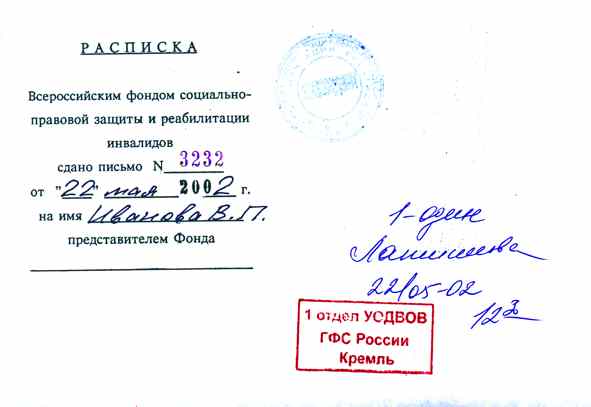 РАСПИСКА
Всероссийским фондом социально-
правовой защиты и реабилитации
инвалидов
сдано письмо N 3232
от "22" мая 2002 г.
на имя Иванова В.П.
представителем Фонда
1-один
22/05-02
1 отдел УСДВОВ
ГФС России
Кремль